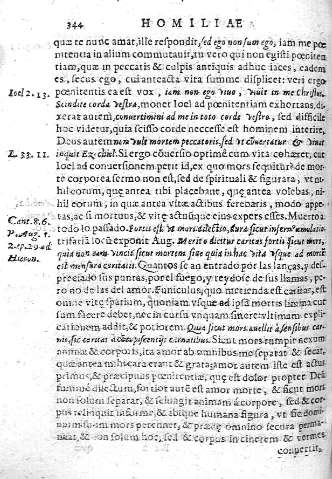 344 HOMILIAE
quæ te nunc amat, ille respondit, sed ego non sum ego, iam me pœ
nitentia in alium commutauit, tu vero qui non egisti pœniten
tiam, quæ in peccatis & culpis antiquis adhuc iaces, eadem
es, secus ego, cui anteacta vita summe displicet: veri ergo
Ioel 2. 13. pœnitentis ea est vox, iam non ego viuo, viuit in me Christus.
Scindite corda vestra, monet Ioel ad pœnitentiam exhortans, di
xerat autem, conuertimini ad me in toto corde vestro, sed difficile
hoc videtur, quia scisso corde neccesse est hominem interire.
Deus autem non vult mortem peccatoris, sed vt conuertatur & viuat
E. 33. 11. inquit Ezechiel. Si ergo conuersio optime cum vita cohæret, cur
Ioel ad conuersionem petit id, ex quo mors sequitur? de mor
te corporea sermo non est, sed de spirituali & figurata, vt ni
hil eorum, quæ antea tibi placebant, quæ antea volebas, ni-
hil eorum, in quæ antea vitæ actibus ferebaris, modo appe-
tas, ac si mortuus, & vitæ actusque eius expers esses. Muerto a
Cant. 8. 6. todo lo passado. Fortis est vt mors dilectio, dura sicut infernus æmulatio
P. Aug. to.
trifariã locũ exponit Aug. Merito dicitur caritas fortis sicut mors,
2. ep. 29. ad quia non vincit sicut mortem sine quia in hac vita vsque ad mortẽ
Hieron. est mensura caritatis. Quantos se an entrado por las lanças, y des-
preciado sus puntas, por el fuego, y reydose de sus llamas, pe-
ro no de las del amor. Funiculus, quo metienda est caritas, est
omne vitę spatium, quoniam vsque ad ipsã mortis limina cur
sum facere debet, nec in cursu vnquam sinere: vltimam expli-
cationem addit, & potiorem. Quia sicut mors auellit à sensibus car-
nis, sic caritas à concupiscentijs carnalibus. Sicut mors rumpit nexum
animæ & corporis, ita amor ab omnibus nos separat & secat,
quæ antea mihi cara erant & grata; amor autem iste est actus
primus, & præcipuus pœnitentiæ, qui est dolor propter Deũ
summe dilectum, fortior autẽ est amor morte, & sicut mors
non solum separat, & seiungit animam à corpore, sed & cor-
pus relinquit informe, & absque humana figura, vt
mors pertenet, & præ omnino secura perma-
neat, & non solum hoc, sed & corpus in cinerem & vermes
conuertit,